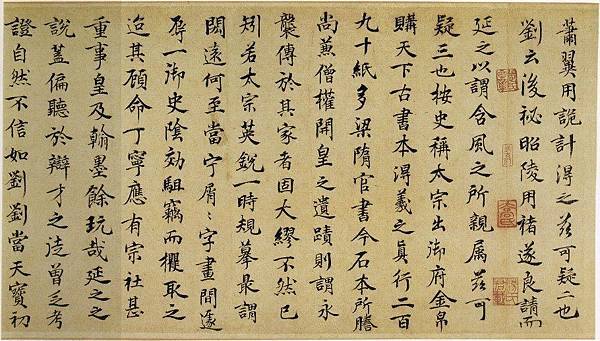 蕭翼用詭計得之茲可疑二也
劉云後祕昭陵用褚遂良請而
延之以謂含風之所親属茲可
疑三也按史稱太宗出御府金帛
購天下古書本得羲之真行二百
九十紙多梁隋官書今石本所謄
尚蕪僧權開皇之遺蹟則謂永
襲傳於其家者固大繆不然已
矧若太宗英銳一時規摹最謂
閎遠何至當宁屑〻字畫間遽
辱一御史陰効駔竊而攫取之
迨其顧命丁寧應有宗社甚
重事皇及翰墨餘玩哉延之之
說蓋偏聽於辯才之徒曾乏考
證自然不信如劉劉當天寶初